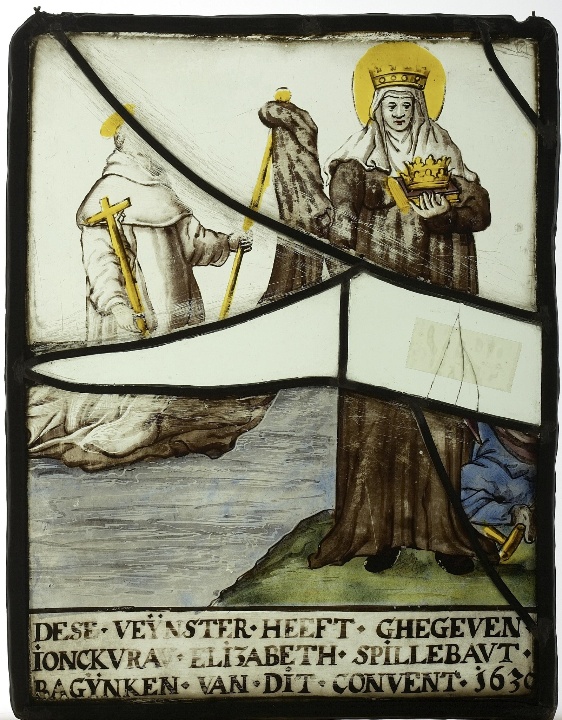 DESE · VEŸNSTER · HEEFT · GHEGEVEN
IONCKVRA ELIZABETH · SPILLEBAVT ·
BAGŸNKEN · VAN · DIT · CONVENT · 1630